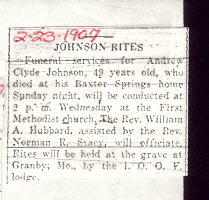 2-23-1907
JOHNSON RITES
Funeral services for Andrew
Clyde Johnson, 49 years old, who
died at his Baxter Springs home
Sunday night, will be conducted at
2 p. m. Wednesday at the First
Methodist church. The Rev. William
A. Hubbard, assisted by the Rev.
Norman R. Stacy, will officiate.
Rites will be held at the grave at
Granby, Mo., by the I. O. O. F.
lodge.